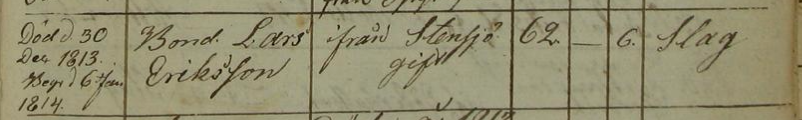 Död d. 30 Bond. Lars ifrån Stensjö 62 — 6. Slag
Dec 1813. Eriksson gift
Begr d 6 Jan
1814.